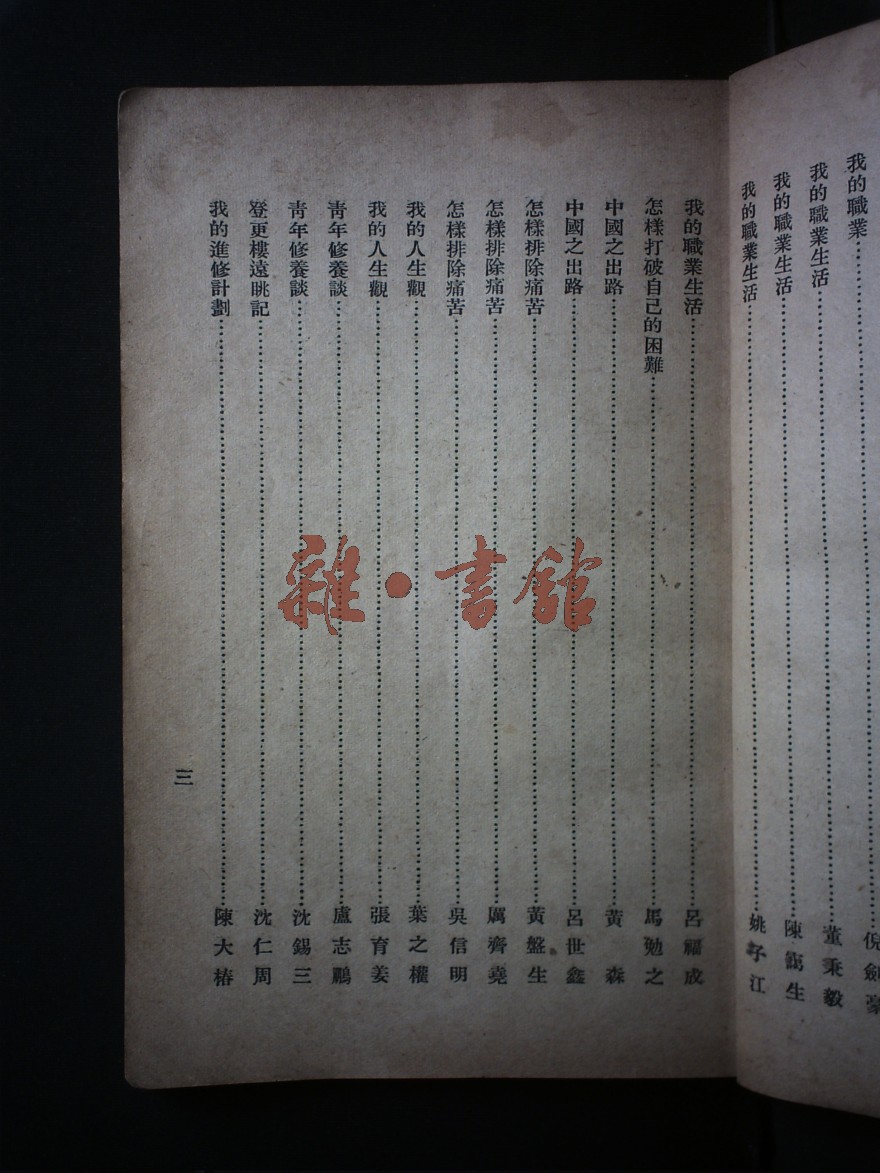 我的職業……倪劍豪
我的職業生活……董秉毅
我的職業生活……陳生
我的職業生活……姚子江
我的職業生活……呂福成
怎樣打破自己的困難……馬勉之
中國之出路……黃森
中國之出路……呂世鑫
怎樣排除痛苦……黃盤生
怎樣排除痛苦……厲齊堯
怎樣排除痛苦……吳信明
我的人生觀……葉之權
我的人生觀……張育姜
靑年修養談……盧志鵬
靑年修養談……沈錫三
登更樓遠眺記……沈仁周
我的進修計劃……陳大椿
三
雜·書館